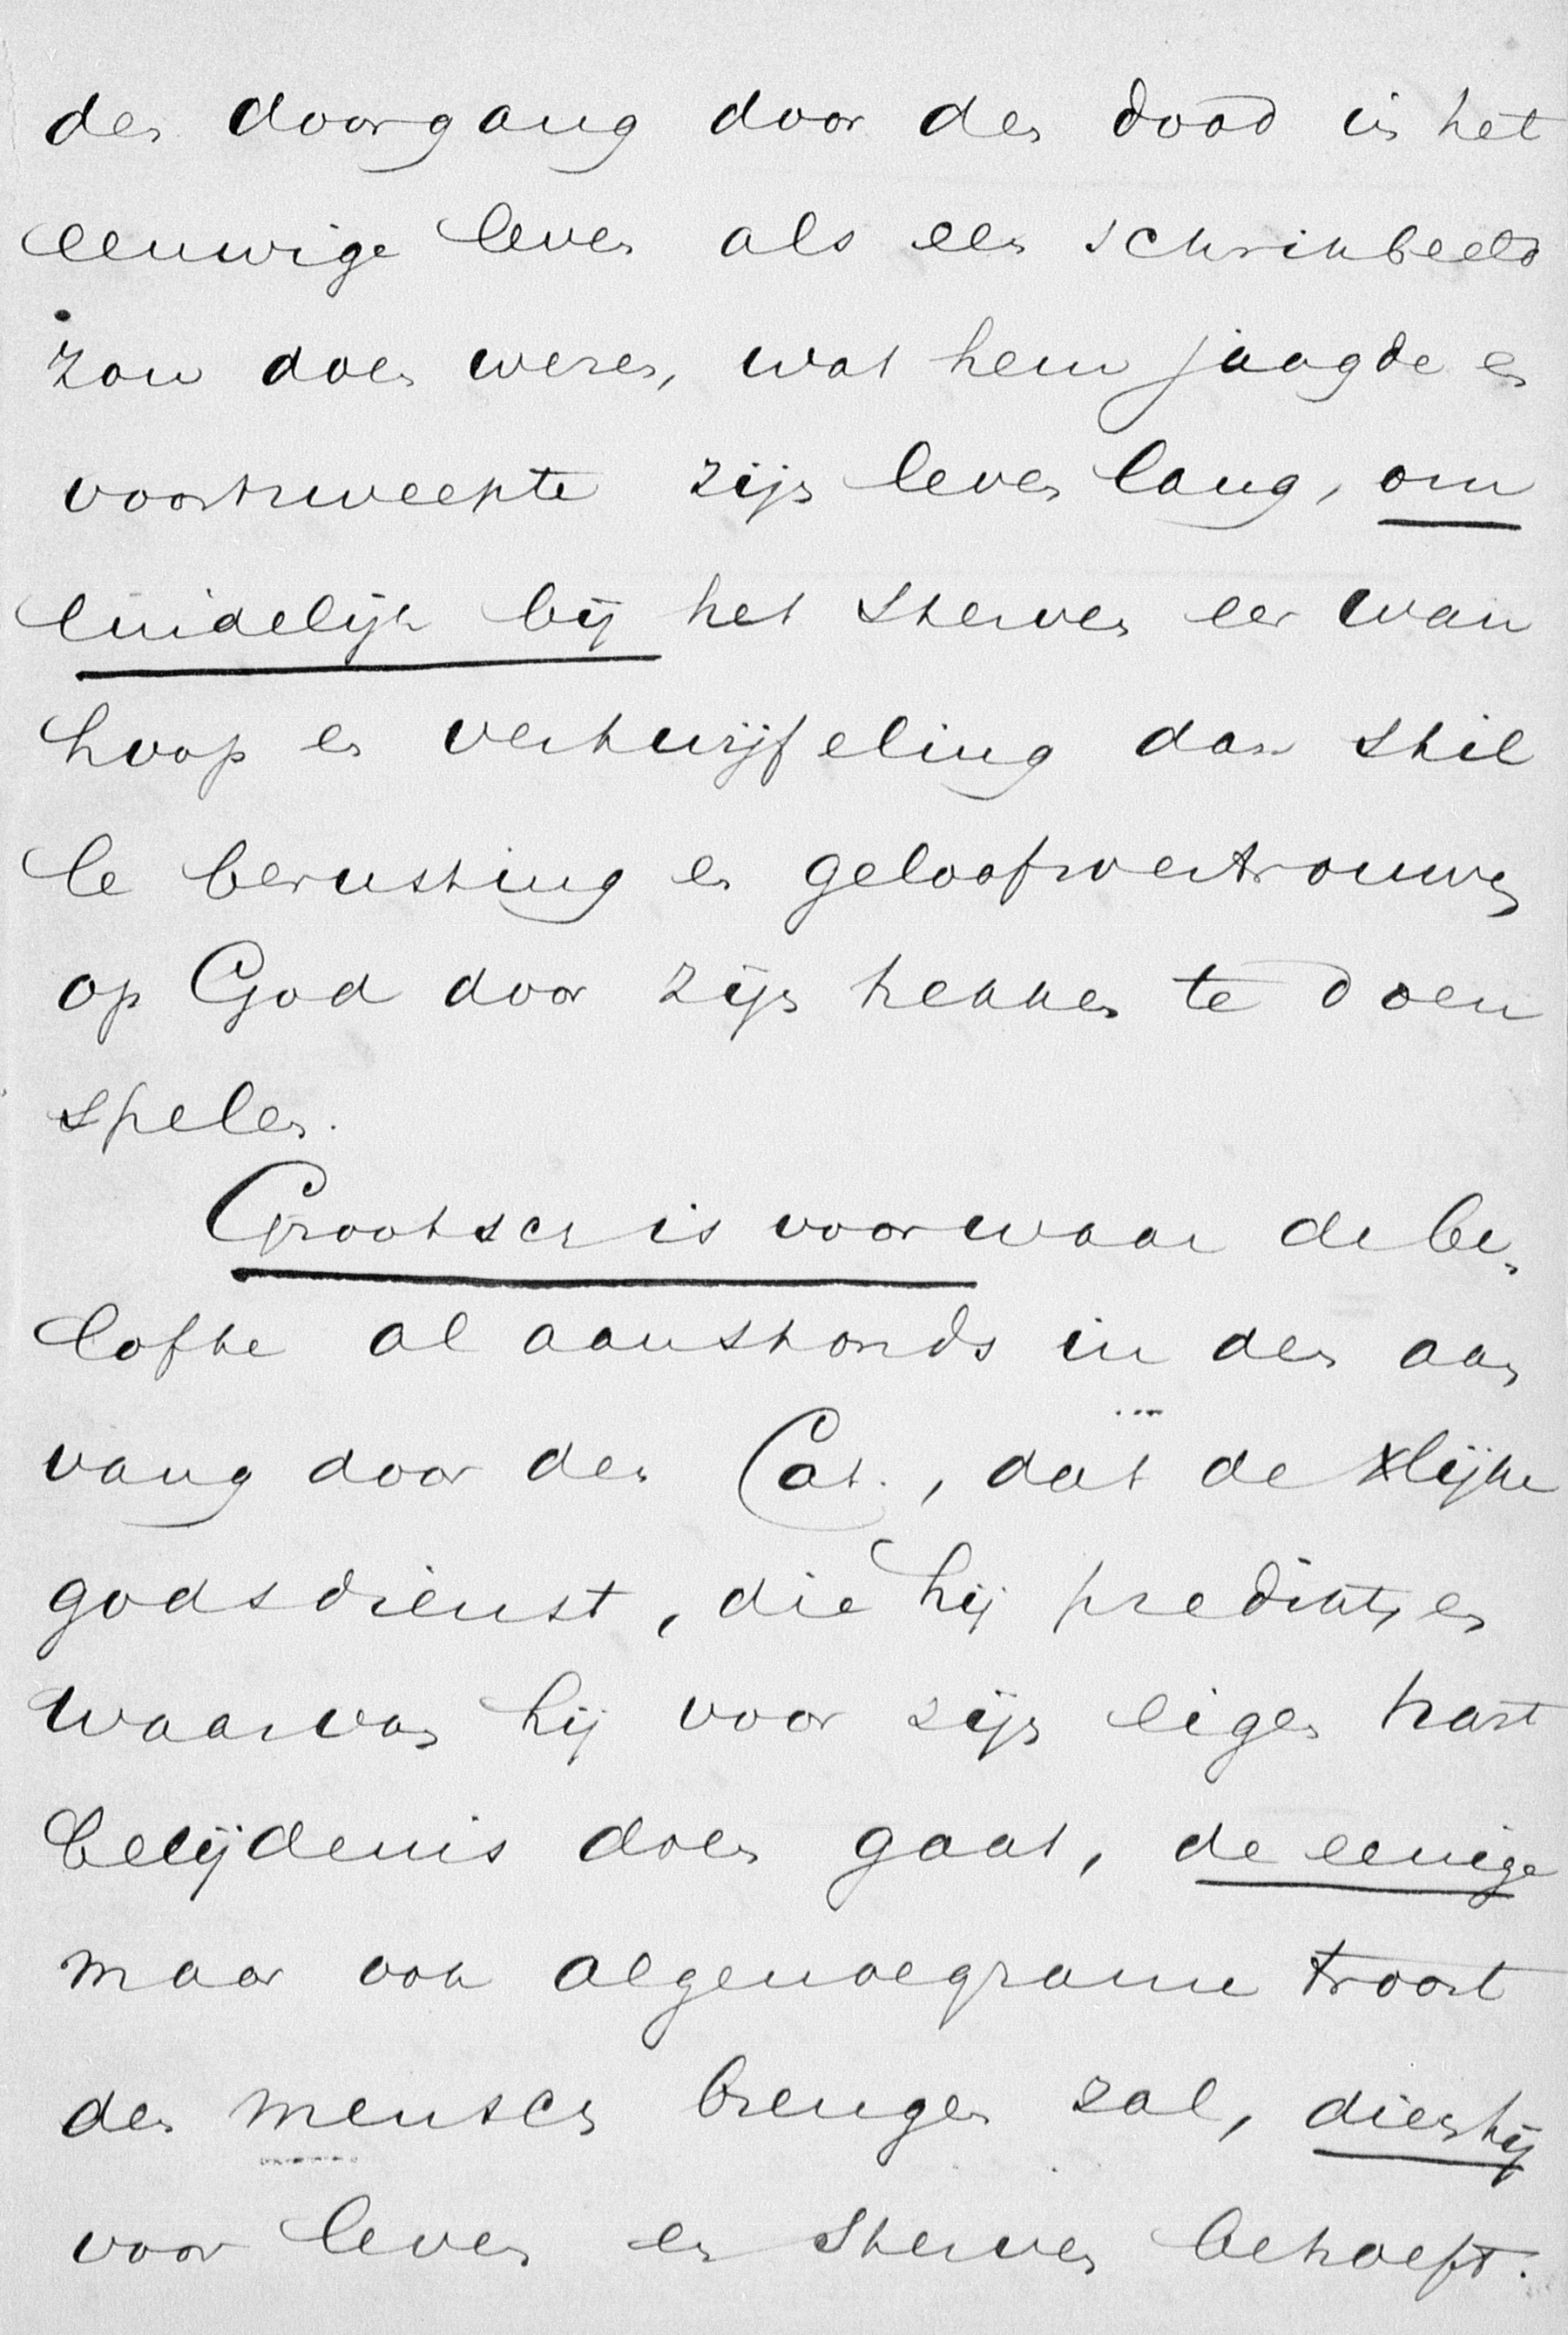 den doorgang door den dood in het
eeuwige leven als een schrikbeeld
zou doen vrezen, wat hem jaagde en
voortzweepte zijn leven lang, om
eindelijk bij het sterven eer wan
hoop en vertwijfeling dan stil
le berusting en geloofsvertrouwen
op God door zijn trekken te doen
spelen.
Grootsch is voorwaar de be-
lofte al aanstonds in den aan
vang door den Cat., dat de Xlijke
godsdienst, die hij predikt, en
waarvan hij voor zijn eigen hart
belijdenis doen gaat, de eenige
maar ook algenoegzame troost
den mensch brengen zal, dien hij
voor leven en sterven behoeft.